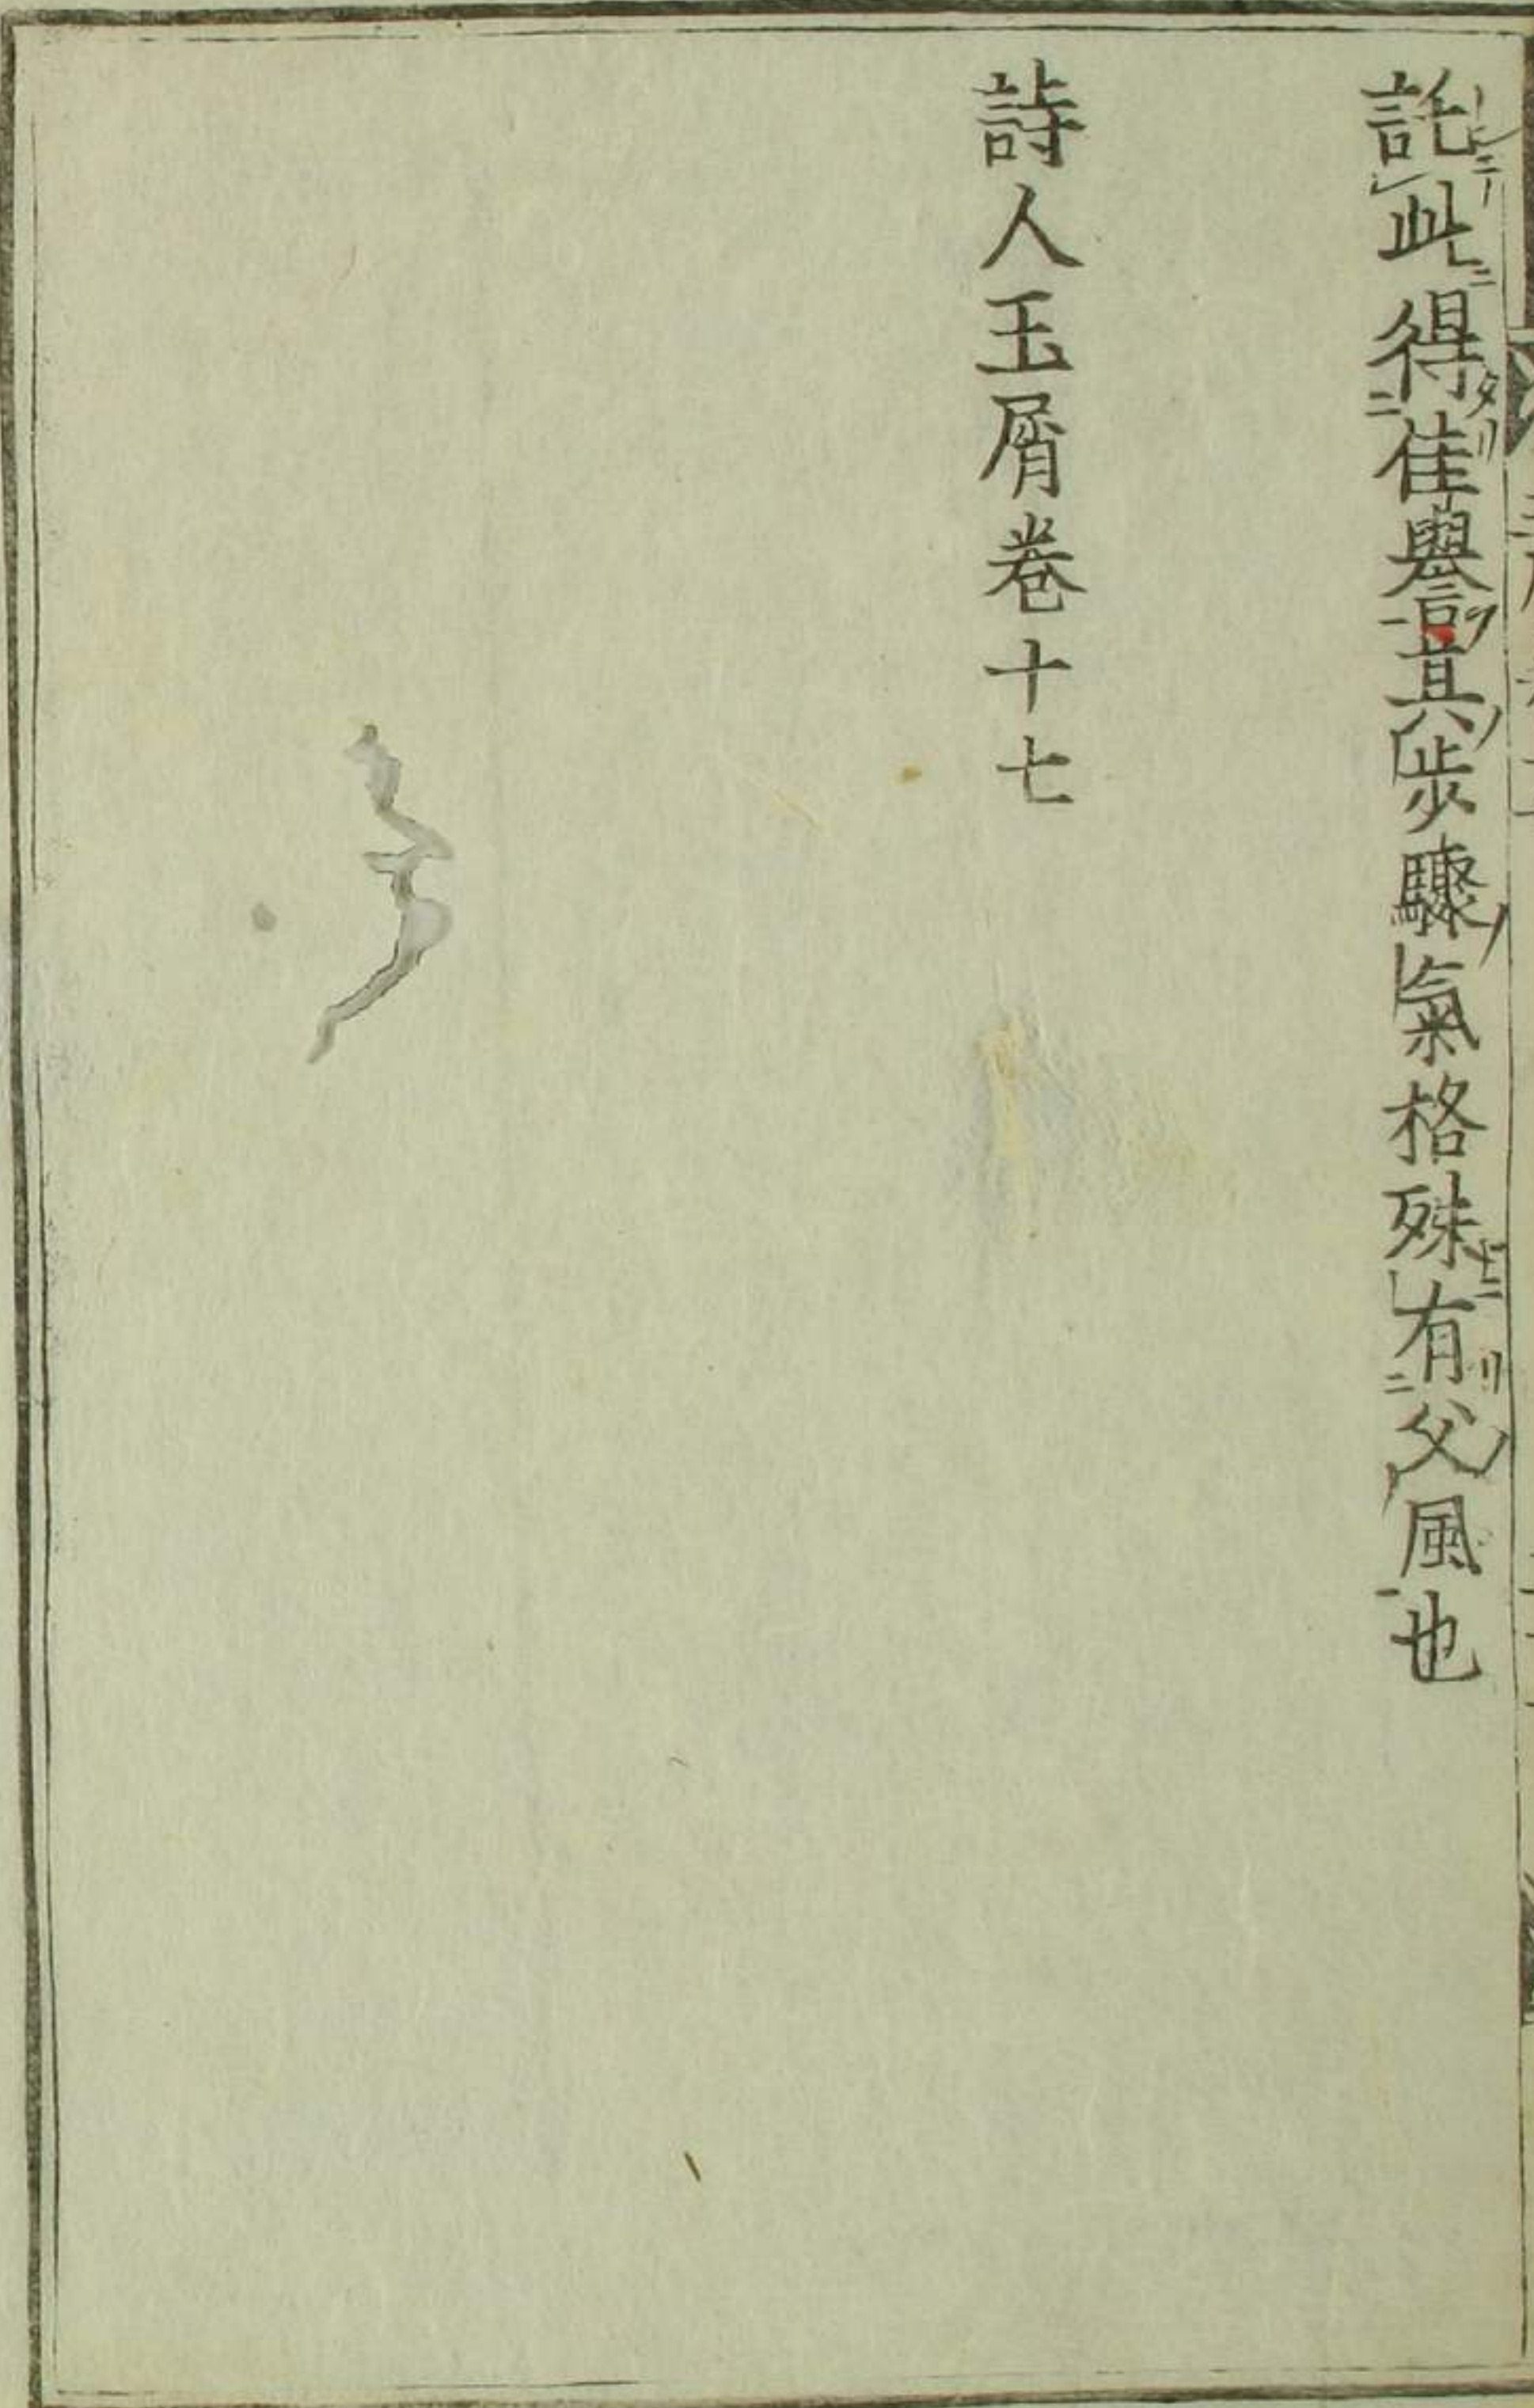 託此得佳譽其步驟氣格殊有父風也
詩人玉屑卷十七